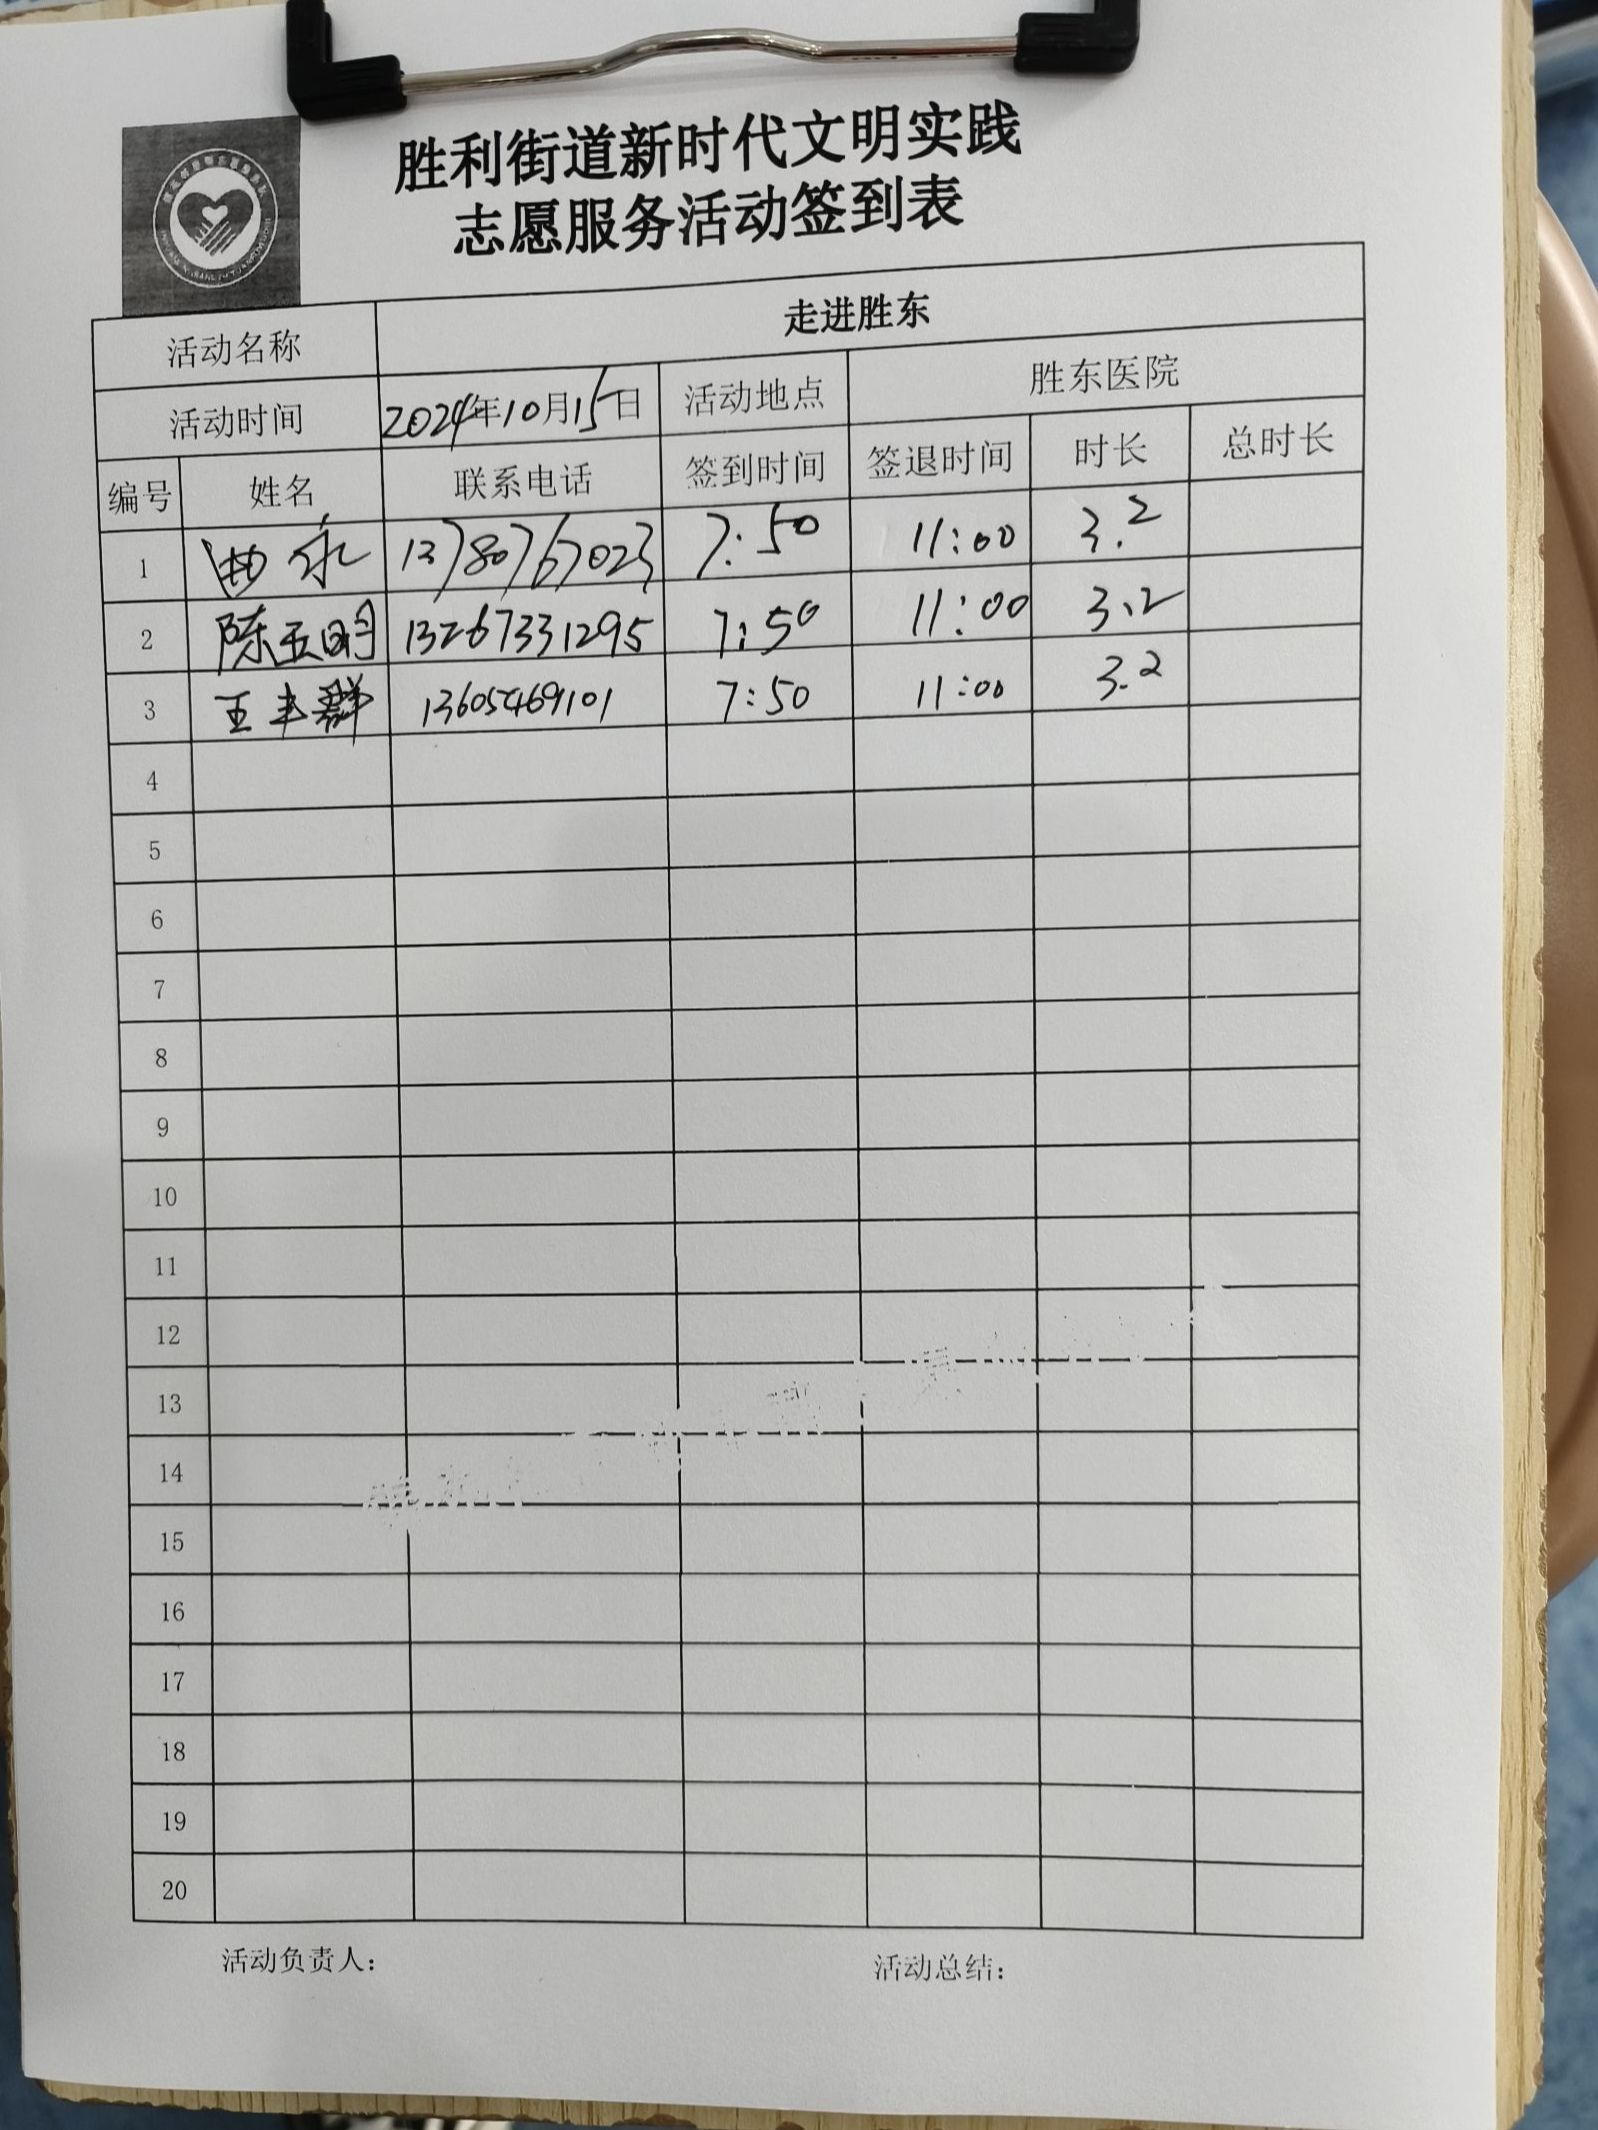 胜利街道新时代文明实践
志愿服务活动签到表
活动名称 走进胜东
活动时间 2024年10月15日 活动地点 胜东医院
编号 姓名 联系电话 签到时间 签退时间 时长 总时长
1 曲永 13780767023 7:50 11:00 3.2
2 陈玉明 13267331295 7:50 11:00 3.2
3 王丰群 13605469101 7:50 11:00 3.2
4
5
6
7
8
9
10
11
12
13
14
15
16
17
18
19
20
活动负责人: 活动总结: